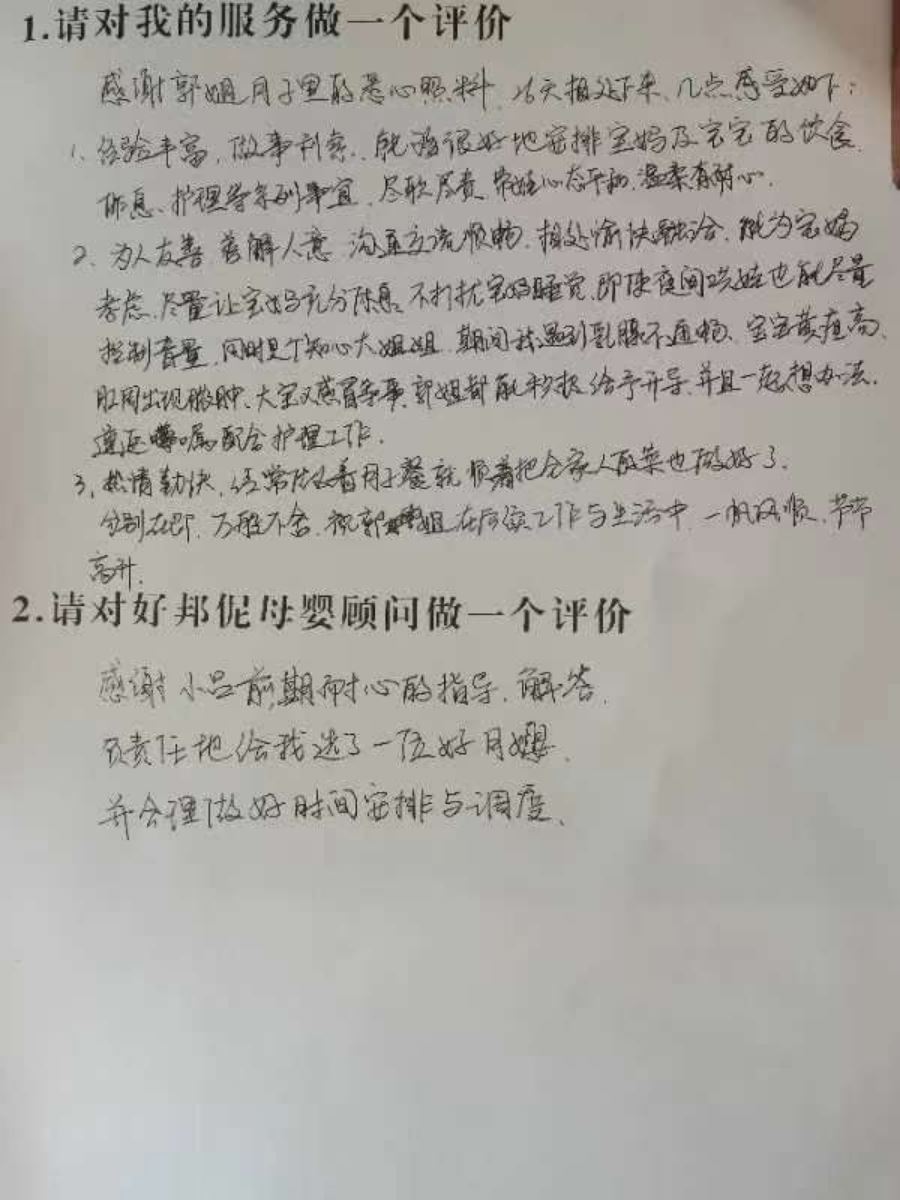 1.请对我的服务做一个评价
感谢郭姐月子里的悉心照料,26天相处下来,几点感受如下:
1、经验丰富,做事利索,能够很好地安排宝妈及宝宝的饮食、
休息、护理等系列事宜,尽职尽责,带娃心态平和,温柔有耐心.
2、为人友善 善解人意 沟通交流顺畅,相处愉快融洽,能为宝妈
考虑,尽量让宝妈充分休息,不打扰宝妈睡觉,即使夜间哄娃也能尽量
控制音量,同时是个知心大姐姐,期间我遇到乳腺不通畅、宝宝黄疸高、
肛周出现脓肿、大宝又感冒等事,郭姐都能积极给予开导,并且一起想办法,
遵医嘱配合护理工作.
3、热情勤快,经常做着月子餐就顺着把全家人的菜也做好了.
分别在即,万般不舍,祝郭姐在后续工作与生活中,一帆风顺,节节
高升.
2.请对好邦伲母婴顾问做一个评价
感谢小吕前期耐心的指导、解答,
负责任地给我选了一位好月嫂,
并合理做好时间安排与调度、